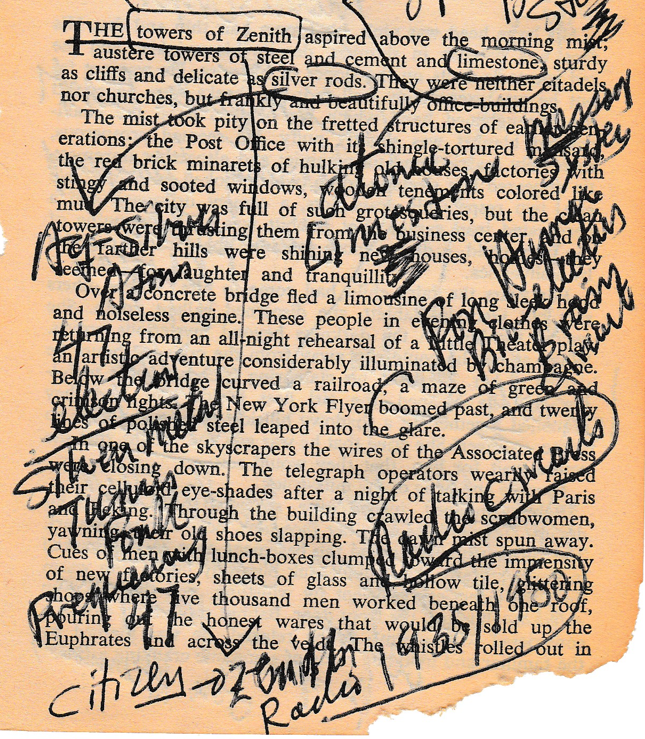 THE towers of Zenith aspired above the morning mist;
austere towers of steel and cement and limestone, sturdy
as cliffs and delicate as silver rods. They were neither citadels
nor churches, but frankly and beautifully office-buildings.
The mist took pity on the fretted structures of earlier gen-
erations: the Post Office with its shingle-tortured mansard,
the red brick minarets of hulking old houses, factories with
stingy and sooted windows, wooden tenements colored like
mud. The city was full of such grotesqueries, but the clean
towers were thrusting them from the business center, and on
the farther hills were shining new houses, homes—they
seemed—for laughter and tranquillity.
Over a concrete bridge fled a limousine of long sleek hood
and noiseless engine. These people in evening clothes were
returning from an all-night rehearsal of a Little Theater play,
an artistic adventure considerably illuminated by champagne.
Below the bridge curved a railroad, a maze of green and
crimson lights. The New York Flyer boomed past, and twenty
lines of polished steel leaped into the glare.
In one of the skyscrapers the wires of the Associated Press
were closing down. The telegraph operators wearily raised
their celluloid eye-shades after a night of talking with Paris
and Peking. Through the building crawled the scrubwomen,
yawning, their old shoes slapping. The dawn mist spun away.
Cues of men with lunch-boxes clumped toward the immensity
of new factories, sheets of glass and hollow tile, glittering
shops where five thousand men worked beneath one roof,
pouring out the honest wares that would be sold up the
Euphrates and across the veldt. The whistles rolled out in
Ag-Silver
Atom
47
electron
Silver Metal
Pulse
Frequency
47
Atomic
Limestone
Human
Brain
Radio Emmarts
Citizen → Zenith
Radio 1930/1950